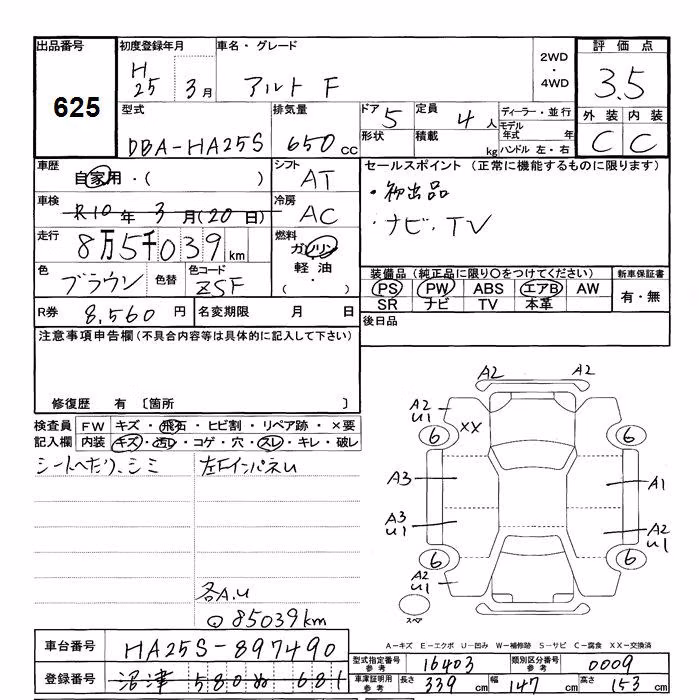 出品番号 初度登録年月 車名・グレード 2WD・4WD 評価点
625 H25 3月 アルト F 3.5
型式 排気量 ドア 5 定員 4人 ディーラー・並行 外装 内装
DBA-HA25S 650cc 形状 積載 kg モデル年式 年 C C
ハンドル 左・右
車歴 自家用・( ) シフト AT セールスポイント (正常に機能するものに限ります)
車検 R10年 3月(20日) 冷房 AC ・初出品
走行 8万5千039km 燃料 ガソリン ・ナビ・TV
軽油
・( )
色 ブラウン 色替 色コード ZSF 装備品(純正品に限り〇をつけてください) 新車保証書
PS PW ABS エアB AW 有・無
SR ナビ TV 本革
R券 8,560円 名変期限 月 日 後日品
注意事項申告欄(不具合内容等は具体的に記入して下さい)
修復歴 有 〔箇所 〕
検査員 FW キズ・飛石・ヒビ割・リペア跡・×要
記入欄 内装 キズ・汚レ・コゲ・穴・スレ・キレ・破レ
シートへたり、シミ 左Fインパネu
各A.u
85039km
A2 A2
A2
U1
XX
6 6
A3 A1
A3
U1
A2
U1
6 6
A2
U1
スペア
A-キズ E-エクボ U-凹み W-補修跡 S-サビ C-腐食 XX-交換済
車台番号 HA25S-897490 型式指定番号 参考 16403 類別区分番号 参考 0009
登録番号 沼津 580 ぬ 681 車庫証明用 参考 長さ 339cm 幅 147cm 高さ 153cm